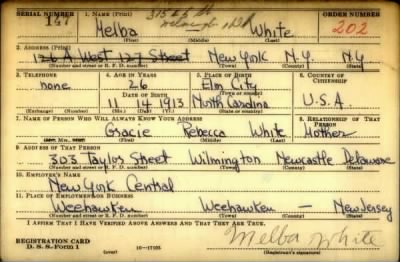 SERIAL NUMBER 1. NAME (Print) ORDER NUMBER
315 E 5th St
141 Melba White 202
(First) (Middle) (Last)
2. ADDRESS (Print)
126 A West 127 Street New York N.Y. N.Y
(Number and street or R. F. D. number) (Town) (County) (State)
3. TELEPHONE 4. AGE IN YEARS 5. PLACE OF BIRTH 6. COUNTRY OF CITIZENSHIP
none 26 Elm City
DATE OF BIRTH (Town or county)
11 14 1913 North Carolina U.S.A.
(Exchange) (Number) (Mo.) (Day) (Yr.) (State or country)
7. NAME OF PERSON WHO WILL ALWAYS KNOW YOUR ADDRESS 8. RELATIONSHIP OF THAT PERSON
Gracie Rebecca White Mother
(Mr., Mrs., Miss) (First) (Middle) (Last)
9. ADDRESS OF THAT PERSON
303 Taylor Street Wilmington Newcastle Delaware
(Number and street or R. F. D. number) (Town) (County) (State)
10. EMPLOYER'S NAME
New York Central
11. PLACE OF EMPLOYMENT OR BUSINESS
Weehawken Weehawken — New Jersey
(Number and street or R. F. D. number) (Town) (County) (State)
I AFFIRM THAT I HAVE VERIFIED ABOVE ANSWERS AND THAT THEY ARE TRUE.
REGISTRATION CARD Melba White
D. S. S. Form 1 16—17105 (Registrant's signature)